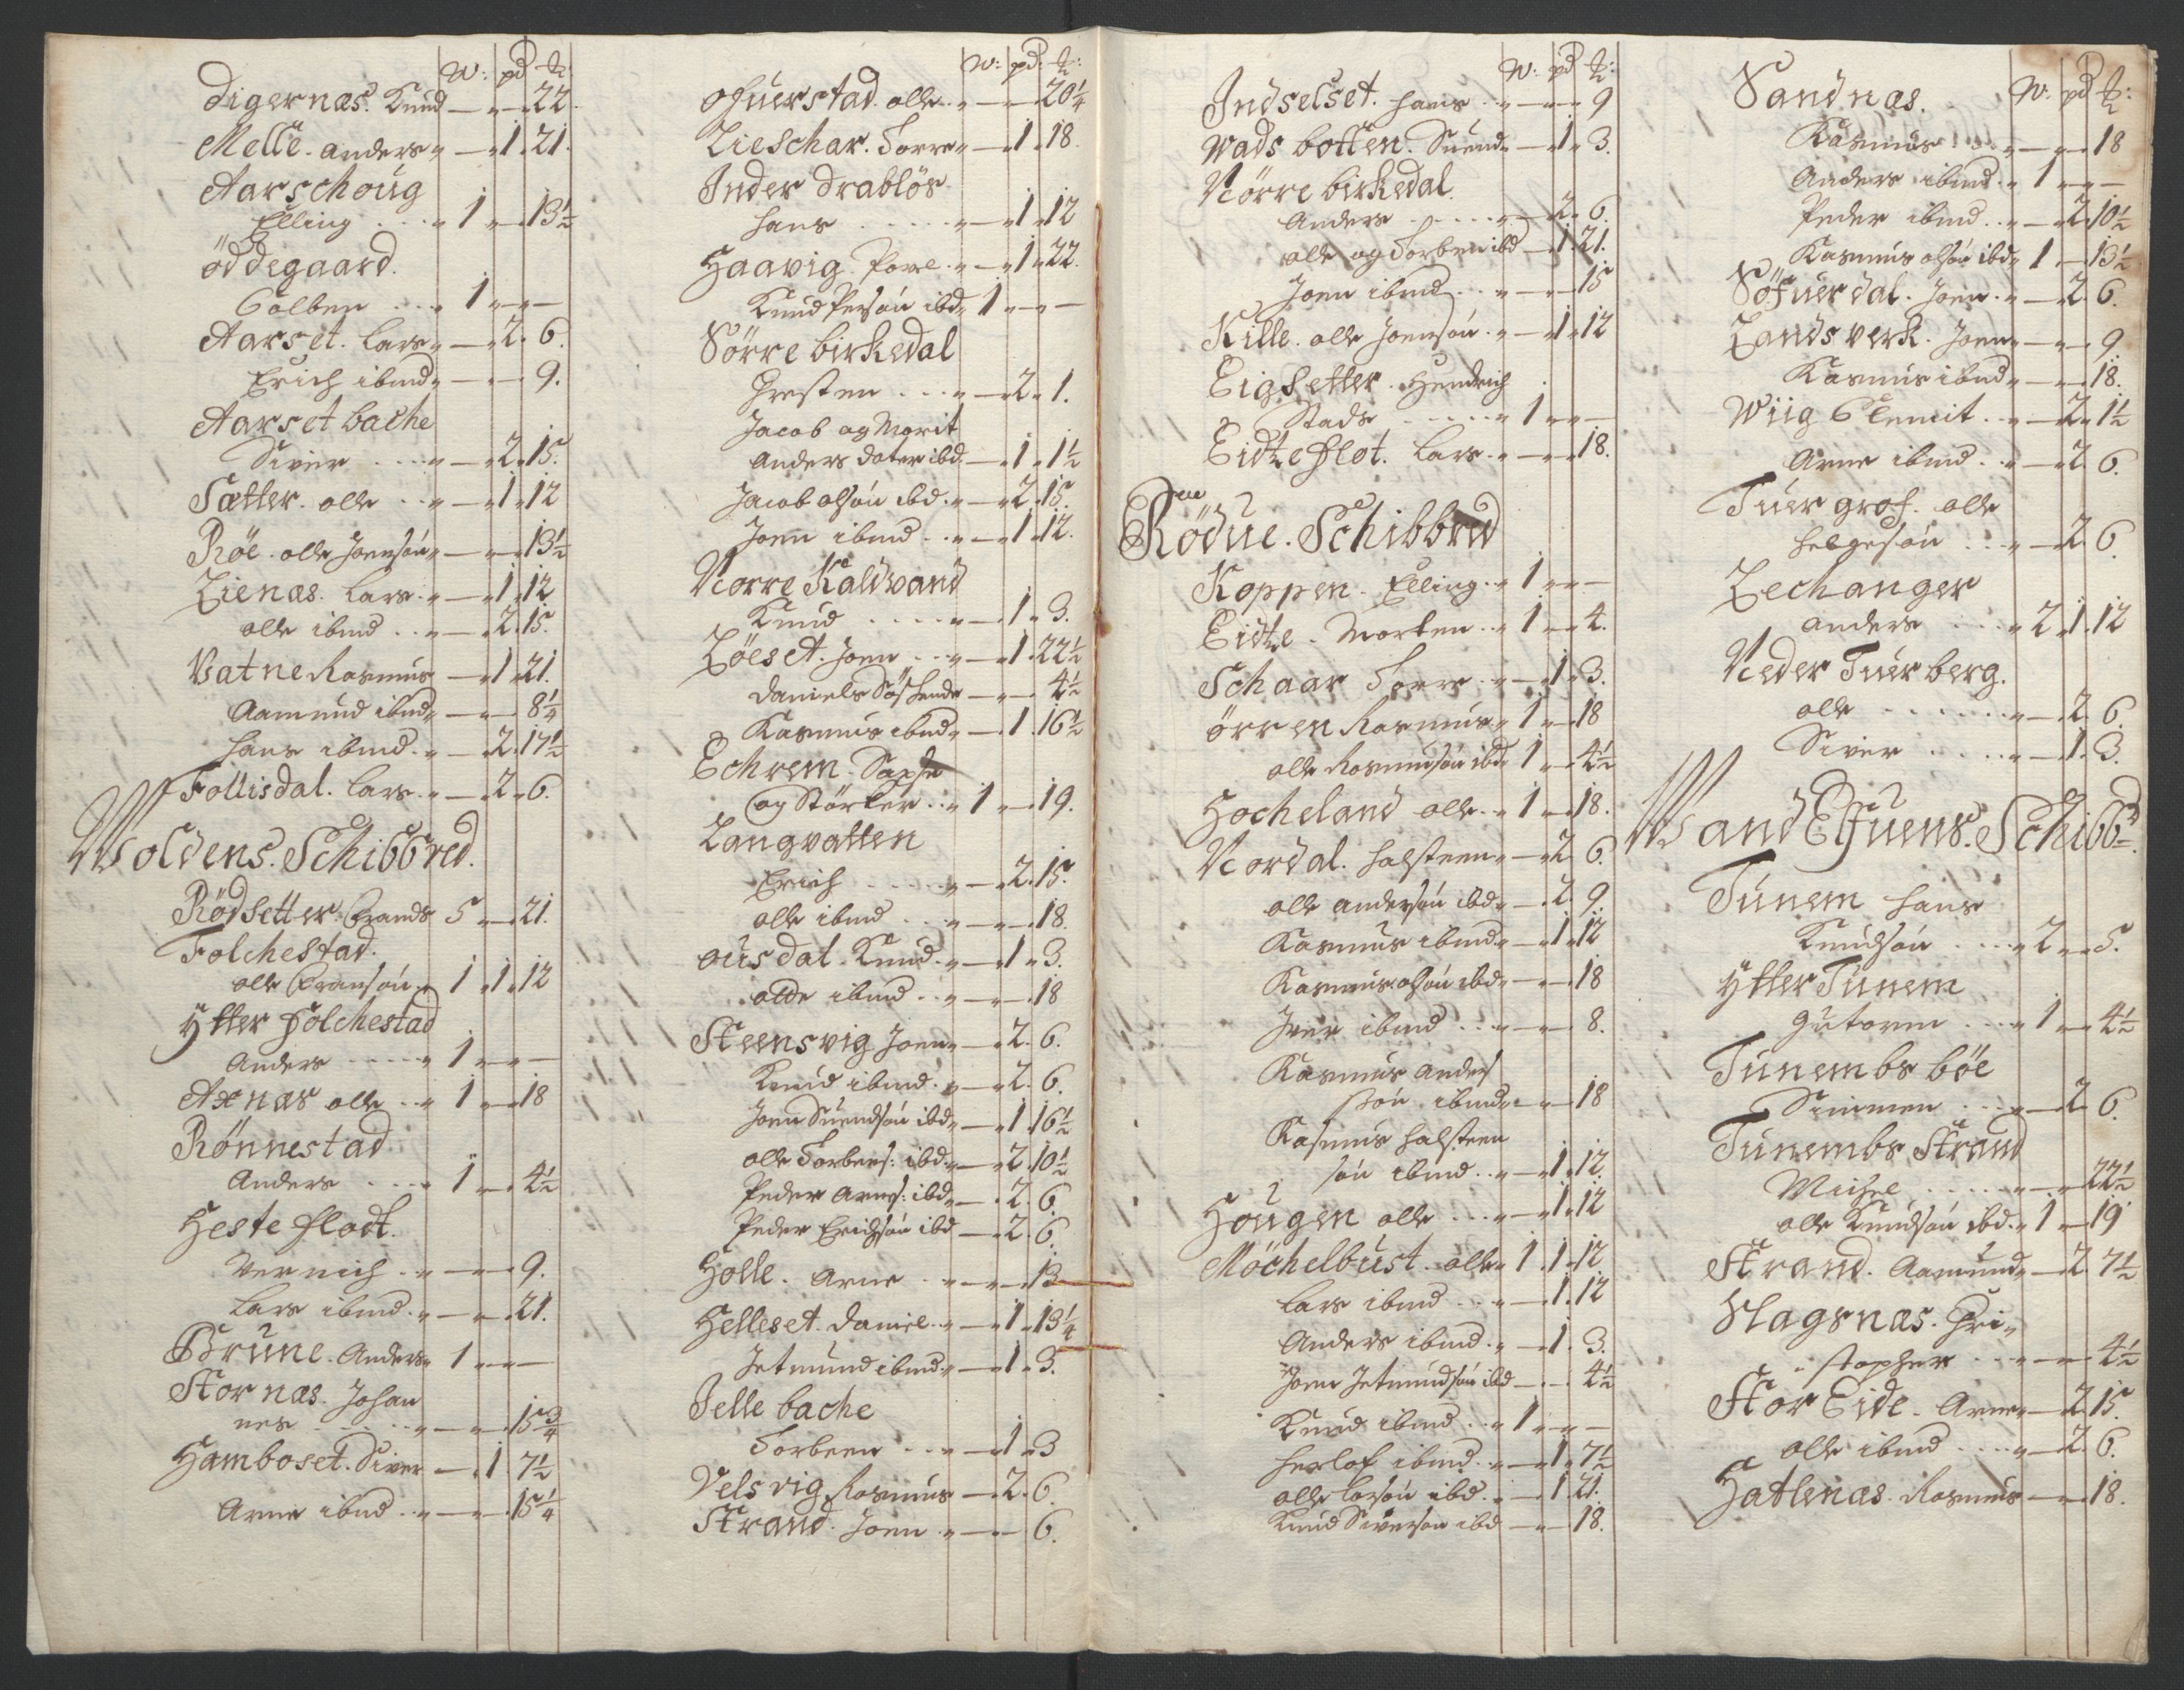 W: pd ℔:
Digernæs. Knud — „ — „ 22.
Melle. Anders „ — „ 1. 21.
Aarschoug
Elling . . . . „ 1 „ — „ 13½
Øddegaard.
Colben . . . „ 1 „ — „ —
Aarset. Lars „ — „ 2. 6.
Erich ibmd „ — „ — 9.
Aarset bache
Siver . . . . „ — „ 2. 15.
Sætter. olle . . „ — „ 1 „ 12
Röe. olle Joensön „ — „ — „ 13½
Lienæs. Lars . „ — „ 1. 12
olle ibmd . . „ — „ 2. 15.
Vatne Rasmus — „ 1 „ 21.
Aamund ibmd „ — „ — 8¼
Hans ibmd . „ — 2. 17½
Follisdal. Lars . „ — „ 2 „ 6.
Woldens. Schibbred.
Rödsetter. Frands 5 „ — „ 21.
Folchestad.
olle Fransön „ 1 „ 1 „ 12
Ytter Folchestad
Anders . . . . „ 1 „ — „ —
Axnæs olle . . „ 1 „ — „ 18
Rönnestad
Anders . . . „ 1 „ — „ 4½
Heste flodt.
Vernich . „ — „ — „ 9.
Lars ibmd . „ — „ — „ 21.
Brune. Anders „ 1 „ — „ —
Stornæs. Johan
nes . . . . . „ — „ — „ 15¾
Hamboset. Siver — „ 1. 7½
Arne ibmd . . „ — „ — „ 15¼
W: pd: ℔:
Ofuerstad. olle . „ — „ — 20¼
Lieschar. Torre „ — „ 1 „ 18.
Inder Drablös
Hans . . . . . „ — „ 1 „ 12
Haavig. Povel . „ — „ 1 „ 22.
Knud Persön ibd „ 1 „ — „ —
Sörre birkedal
Gresten . . . „ — „ 2 „ 1.
Jacob og Marit
Anders dater ibd — „ 1 „ 1½
Jacob olsön ibd . „ — „ 2 „ 15.
Joen ibmd . . „ — „ 1 „ 12.
Norre Kaldvand
Knud . . . . „ — „ 1 „ 3.
Löeset. Joen . . „ — „ 1. 22½
Daniels Söskende — „ — 4½
Rasmus ibmd „ — „ 1 „ 16½
Echrem. Sophe
og Störker . . „ 1 „ — „ 19.
Langvatten
Erich . . . . . „ — „ 2. 15.
olle ibmd . . . „ — „ — „ 18.
Ousdal. Knud . „ — „ 1 „ 3.
olde ibmd . . „ — „ — „ 18
Steensvig Joen „ — „ 2. 6.
Knud ibmd . „ — „ 2. 6.
Joen Suendsön ibd „ — „ 1 16½
olle Torbens: ibd „ — „ 2. 10½
Peder Arnes: ibd „ — . 2. 6.
Peder Erichsön ibd — „ 2. 6.
Holle. Arne . „ — „ — „ 13
Helleset. Daniel . „ — „ 1 „ 13¼
Jetmund ibmd „ — „ 1 „ 3.
Jelle bache
Torbeen . . . „ — „ 1 „ 3
Velsvig. Rasmus — „ 2. 6.
Strand. Joen . „ — „ — 6.
W: pd ℔:
Indselset. Hans . . „ — „ — „ 9
Wadsbotten. Suend „ — „ 1 „ 3.
Nörre birkedal.
Anders . . . . . „ — „ 2 „ 6.
olle og Torben ibd — „ 1. 21.
Joen ibmd . . „ — „ — „ 15
Kille. olle Joensön . „ — „ 1 „ 12
Eigsetter. Hendrich
Stads . . . . . „ 1 „ — „ —
Eidte flot. Lars . „ — „ — „ 18.
Rödue. Schibbred
Koppen. Elling . „ 1 „ — „ —
Eidte. Morten . „ 1 „ — „ 4.
Schaar Torre . „ — „ 1 „ 3.
Örren Rasmus „ 1 „ — „ 18
olle Rasmusön ibd „ 1 „ — 4½
Hocheland olle . „ 1 „ — „ 18.
Nordal. Halsteen „ — „ 2 6.
olle Andersön ibd „ — . 2. 9.
Rasmus ibmd „ — „ 1 „ 12
Rasmus olsön ibd „ — „ — „ 18
Iver ibmd . . „ — „ — 8.
Rasmus Anders
sön ibmd „ — „ — 18
Rasmus Halsteen
sön ibmd . . „ — „ 1 „ 12.
Hougen olle . . . „ — „ 1 „ 12
Möchelbust. olle „ 1 „ 1 „ 12
Lars ibmd . . . „ — „ 1. 12
Anders ibmd . „ — „ 1. 3.
Joen Jetmundsön ibd — „ — „ 4½
Knud ibmd . . „ 1 „ — „ —
Herlof ibmd . „ — „ 1 „ 7½
olle Larsön ibd . „ — „ 1 21.
Knud Siversön ibd — „ — „ 18.
Sandnæs. W: pd ℔:
Rasmus . . . „ — „ — „ 18
Anders ibmd . „ 1 „ — „ —
Peder ibmd . . „ — „ 2 10½
Rasmus olsön ibd „ 1 „ — 13½
Söfuerdal. Joen . „ — „ 2. 6.
Landsverk. Joen „ — „ — „ 9
Rasmus ibmd „ — „ — „ 18.
Wiig Clemit . . „ — „ 2 „ 1½
Arne ibmd . „ — „ 2 6.
Tuergrof. olle
Helgesön . . „ — „ 2 6.
Lechanger
Anders . . . „ 2 „ 1. 12
Neder Tuerberg.
olle . . . . . . „ — „ 2. 6.
Siver . . . . „ — „ 1. 3.
Wand Elfuens. Schibbd.
Tunem Hans
Knudsön . . . „ 2 „ — „ 5.
Ytter Tunem
Gutorm . . . „ 1 „ — „ 4½
Tunembs böe
Simmen . . . „ — „ 2 6.
Tunembs Strand
Michel . . . . . „ — „ — 22½
olle Knudsön ibd . „ 1 „ — „ 19
Strand. Aamund „ — „ 2 7½
Hagsnæs. Chri„
„stopher . . . „ — „ — 4½
Stor Eide. Arne „ — „ 2 15.
olle ibmd . . . . „ — „ 2. 6.
Hatlenæs. Rasmus — „ — „ 18.